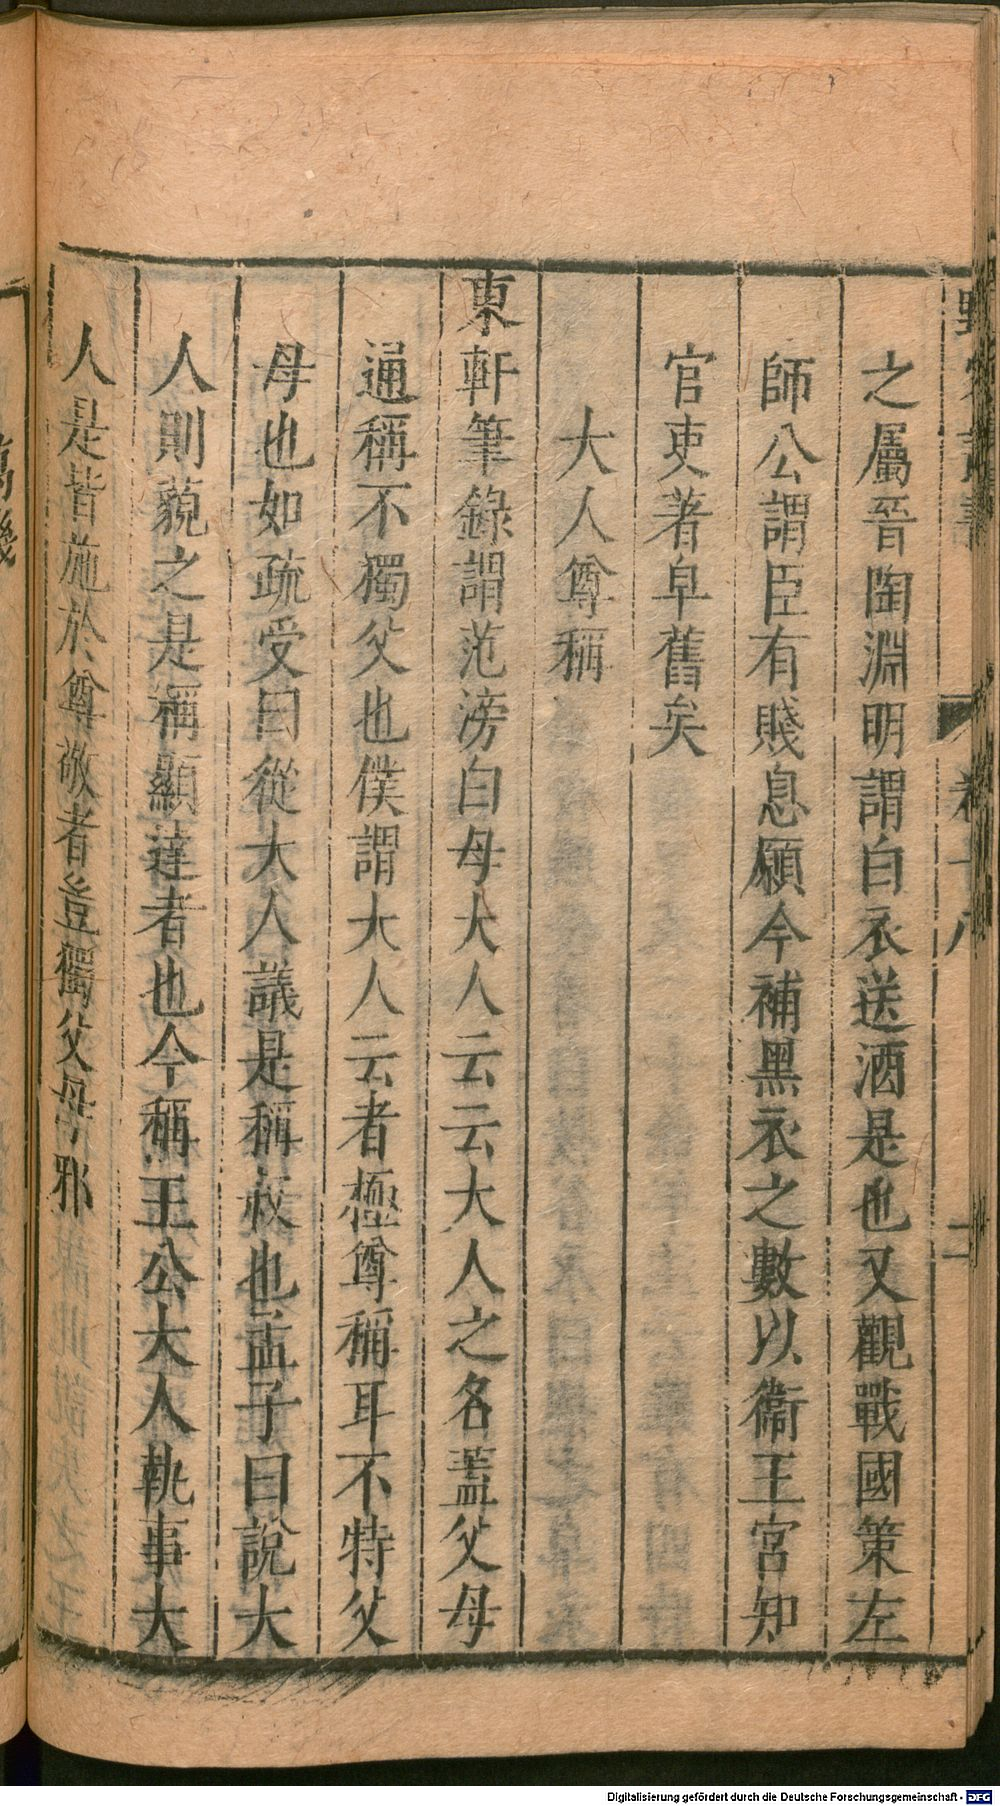 之屬晉陶淵明謂白衣送酒是也又觀戰國策左
師公謂臣有賤息願令補黑衣之數以衞王宮知
官吏著皁舊矣
大人尊稱
東軒筆錄謂范滂白母大人云云大人之名蓋父母
通稱不獨父也僕謂大人云者極尊稱耳不特父
母也如疏受曰從大人議是稱叔也孟子曰說大
人則藐之是稱顯達者也今稱王公大人執事大
人是皆施於尊敬者豈獨父母邪
Digitalisierung gefördert durch die Deutsche Forschungsgemeinschaft - DFG